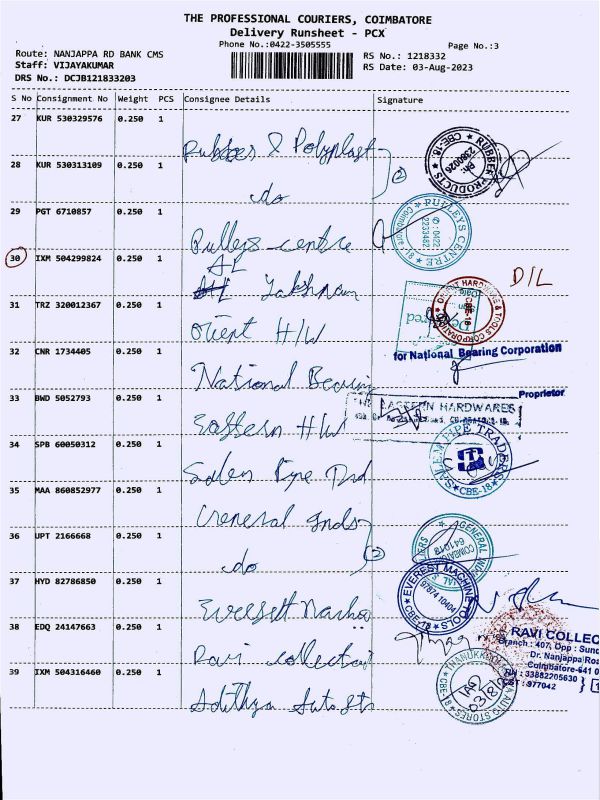 THE PROFESSIONAL COURIERS, COIMBATORE
Delivery Runsheet - PCX
Phone No.:0422-3505555
Page No.:3
Route: NANJAPPA RD BANK CMS
RS No.: 1218332
Staff: VIJAYAKUMAR
RS Date: 03-Aug-2023
DRS No.: DCJB121833203
S No Consignment No Weight PCS Consignee Details Signature
27 KUR 530329576 0.250 1 Rubber & Polyplast
RUBBER PRODUCTS CBE-18. Ph: 2380026
28 KUR 530313109 0.250 1 do
29 PGT 6710857 0.250 1 Pulleys centre
PULLEYS CENTRE Coimbatore-18 ✆ : 0422 2233482
30 IXM 504299824 0.250 1 AL
D/L
31 TRZ 320012367 0.250 1 Orient H/W
ORIENT HARDWARE & TOOLS CORPORATION CBE-18
32 CNR 1734405 0.250 1 National Bearing
for National Bearing Corporation
Proprietor
33 BWD 5052793 0.250 1 Eastern H/W
EASTERN HARDWARES
34 SPB 60050312 0.250 1 Salem Pipe Trd
SALEM PIPE TRADERS CBE-18
35 MAA 860852977 0.250 1 General Inds
36 UPT 2166668 0.250 1 do
GENERAL COIMBATORE 641018
37 HYD 82786850 0.250 1
EVEREST MACHINE TOOLS CBE-18 97874 10404
38 EDQ 24147663 0.250 1 Ravi collection
RAVI COLLEC
Branch : 407, Opp : Sund
Dr. Nanjappa Roa
Coimbatore-641 0
33882205630
CST : 977042
39 IXM 504316460 0.250 1 Adithya Auto Sts
AUTO STORES CBE-18